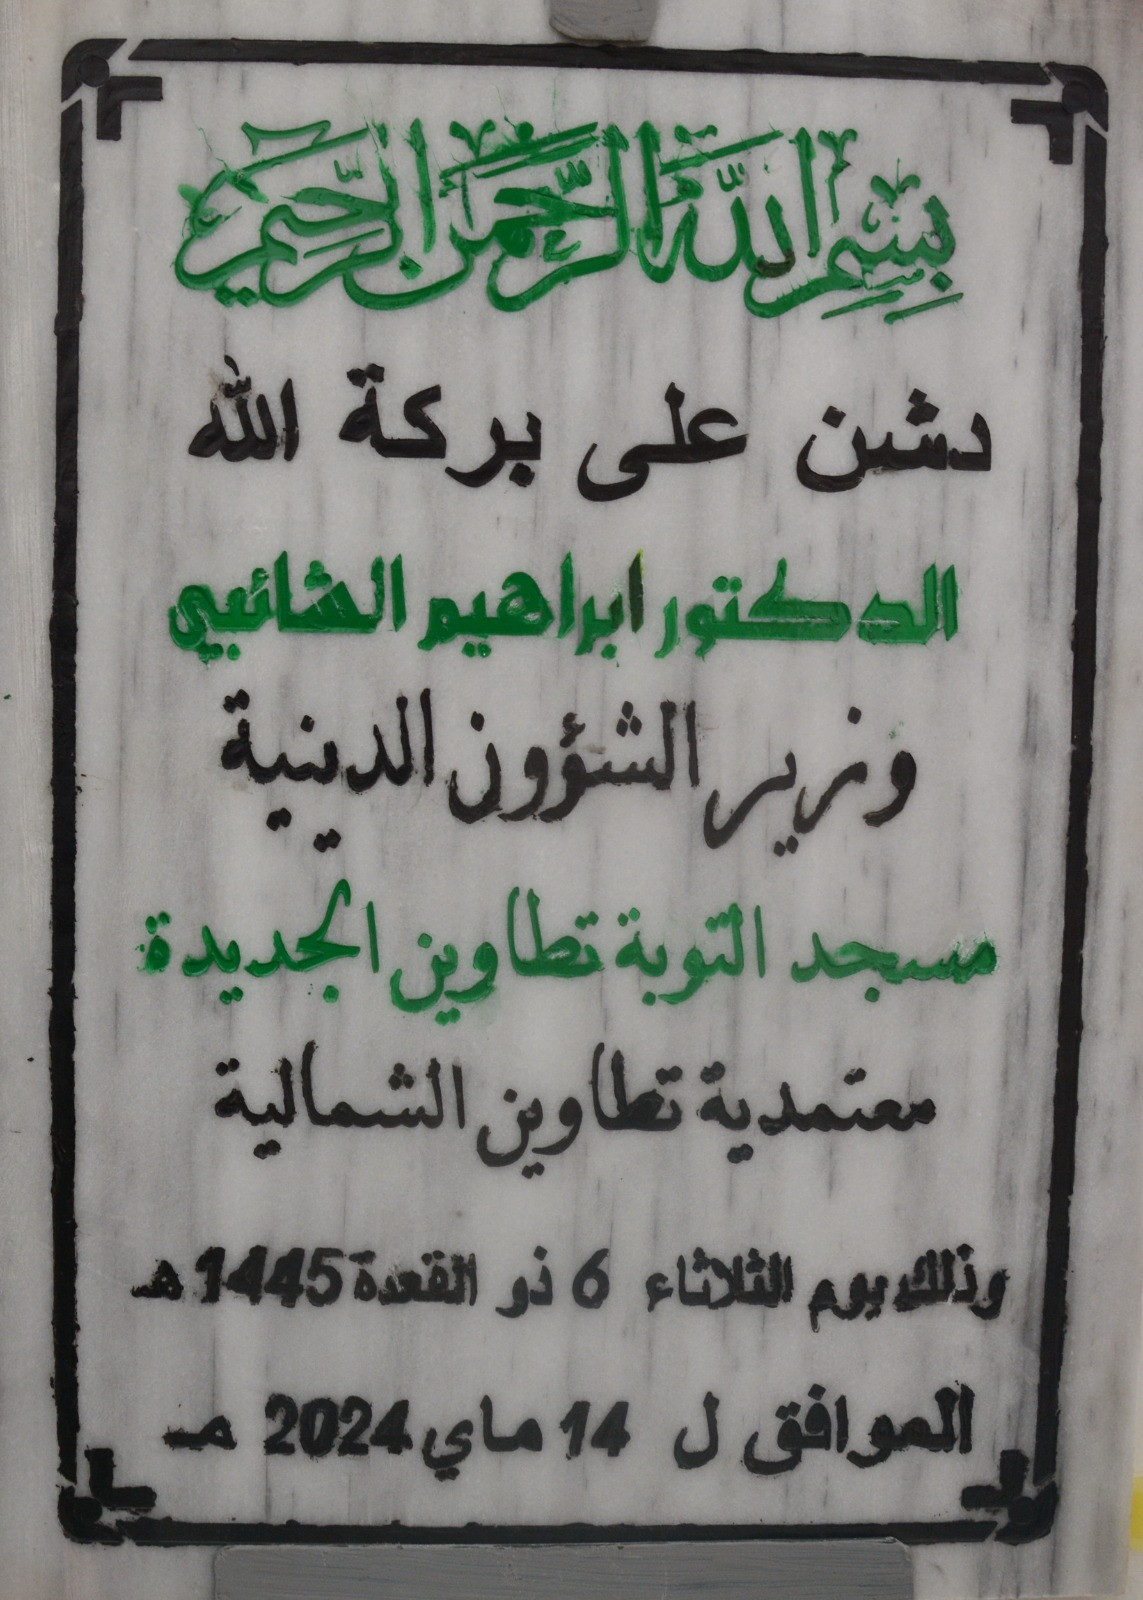 بسم الله الرحمن الرحيم
دشن على بركة الله
الدكتور ابراهيم الشائبي
وزير الشؤون الدينية
مسجد التوبة تطاوين الجديدة
معتمدية تطاوين الشمالية
وذلك يوم الثلاثاء 6 ذو القعدة 1445 هـ
الموافق ل 14 ماي 2024 مـ